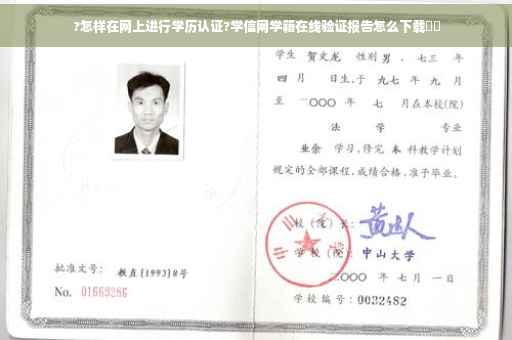 ?怎样在网上进行学历认证?学信网学籍在线验证报告怎么下载
学生 贺文龙 性别 男 、七三 年
四 月 日生,于 九七 年 九 月
至 二〇〇〇 年 七 月在本校(院)
法 学 专业
业余 学习,修完 本 科教学计划
规定的全部课程,成绩合格,准予毕业。
校(院)长:
学校(院): 中山大学
二〇〇〇 年 七 月 一 日
学校编号: 0032482
批准文号: 教直[1993]8号
No. 01669286